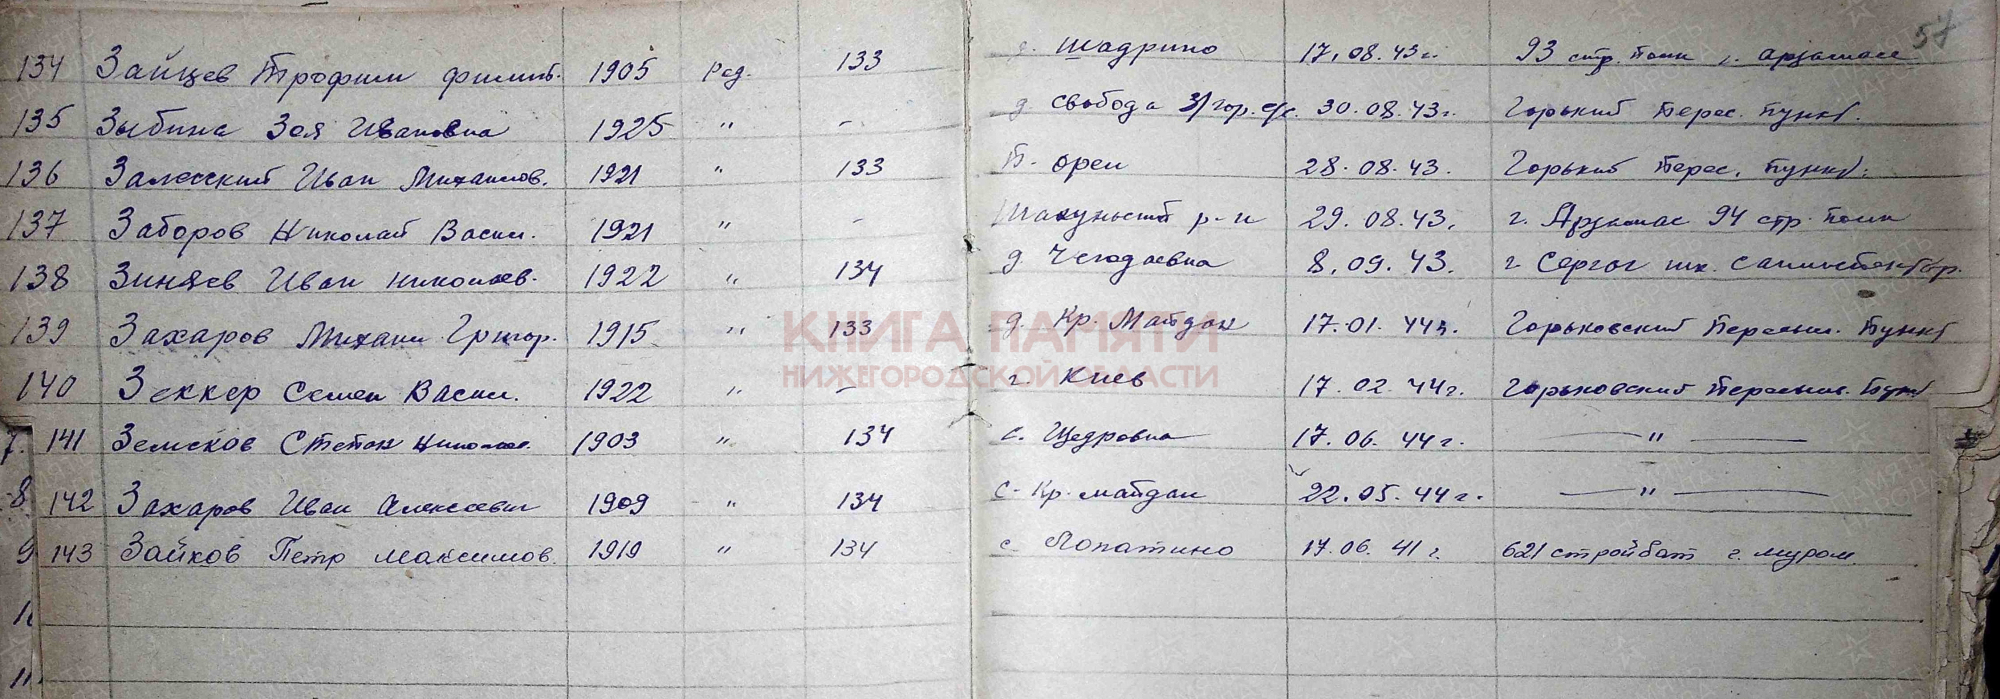 57
134 Зайцев Трофим Филип. 1905 Ряд. 133 д. Шадрино 17.08.43 г. 93 стр. полк г. Арзамас
135 Зыбина Зоя Ивановна 1925 " - д. Свобода 30.08.43 г. Горький Перес. Пункт.
136 Залесский Иван Михайлов. 1921 " 133 28.08.43. Горький Перес. Пункт.
137 Заборов Николай Васил. 1921 " - Шахунский р-н 29.08.43. г. Арзамас 94 стр. полк
138 Зиняев Иван Николаев. 1922 " 134 д. 8.09.43. г. Сергач шк.
139 Захаров Михаил Григор. 1915 " 133 д. Кр. Майдан 17.01.44 г. Горьковский Пересыл. Пункт
КНИГА ПАМЯТИ
НИЖЕГОРОДСКОЙ ОБЛАСТИ
140 Зеккер Семен Васил. 1922 " - г. Киев 17.02.44 г. Горьковский Пересыл. Пункт
7. 141 Земсков Степан Николаев. 1903 " 134 с. Щедровка 17.06.44 г. — " —
8 142 Захаров Иван Алексеевич 1909 " 134 с. Кр. майдан 22.05.44 г. — " —
9 143 Зайков Петр Максимов. 1919 " 134 с. Лопатино 17.06.41 г. 621 стройбат г. Муром